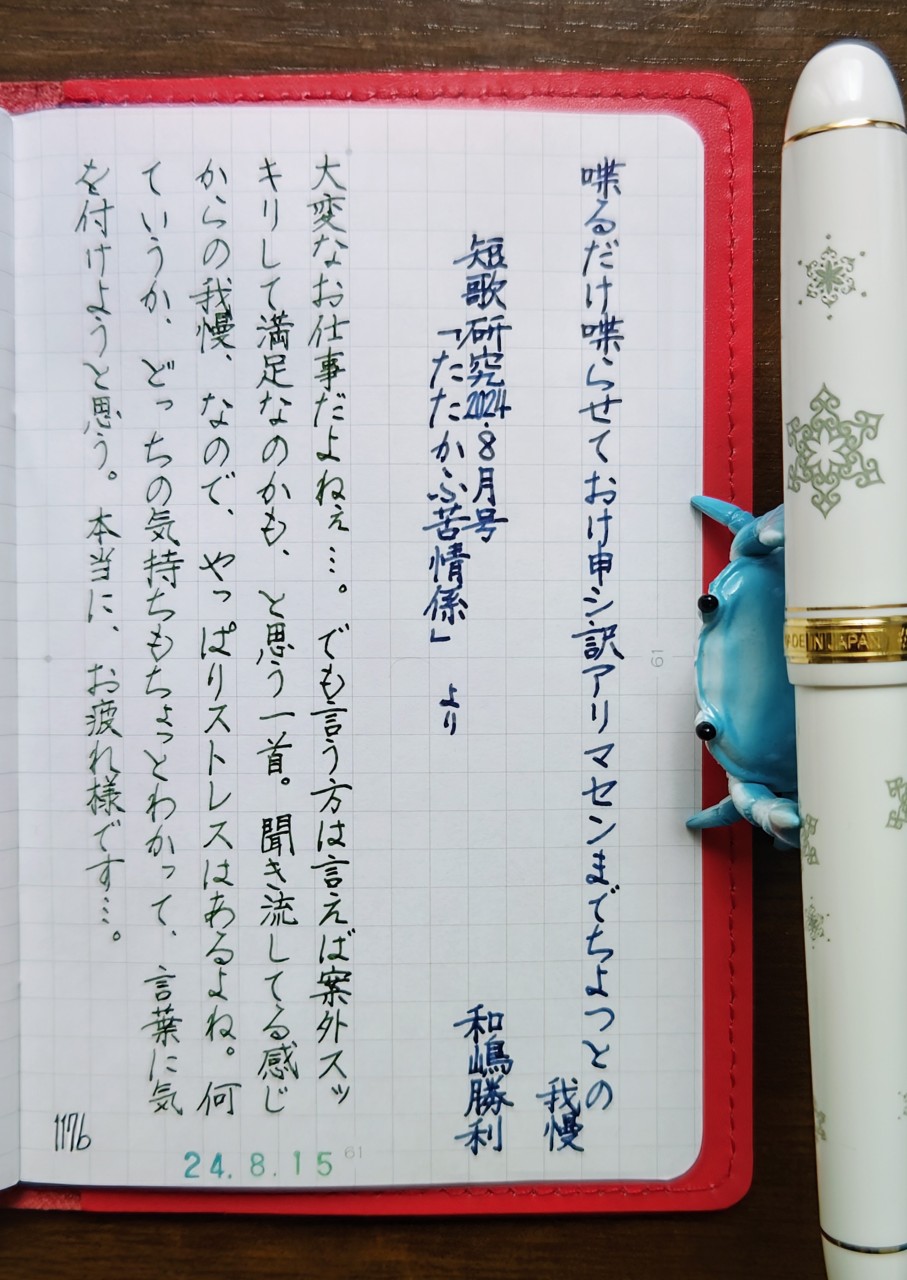 喋るだけ喋らせておけ申シ訳アリマセンまでちよつとの
我慢
短歌研究2024.8月号
「たたかふ苦情係」 より
和嶋勝利
大変なお仕事だよねぇ…。でも言う方は言えば案外スッ
キリして満足なのかも、と思う一首。聞き流してる感じ
からの我慢、なので、やっぱりストレスはあるよね。何
ていうか、どっちの気持ちもちょっとわかって、言葉に気
を付けようと思う。本当に、お疲れ様です…。
1176
24.8.15
61
61
DE IN JAPAN